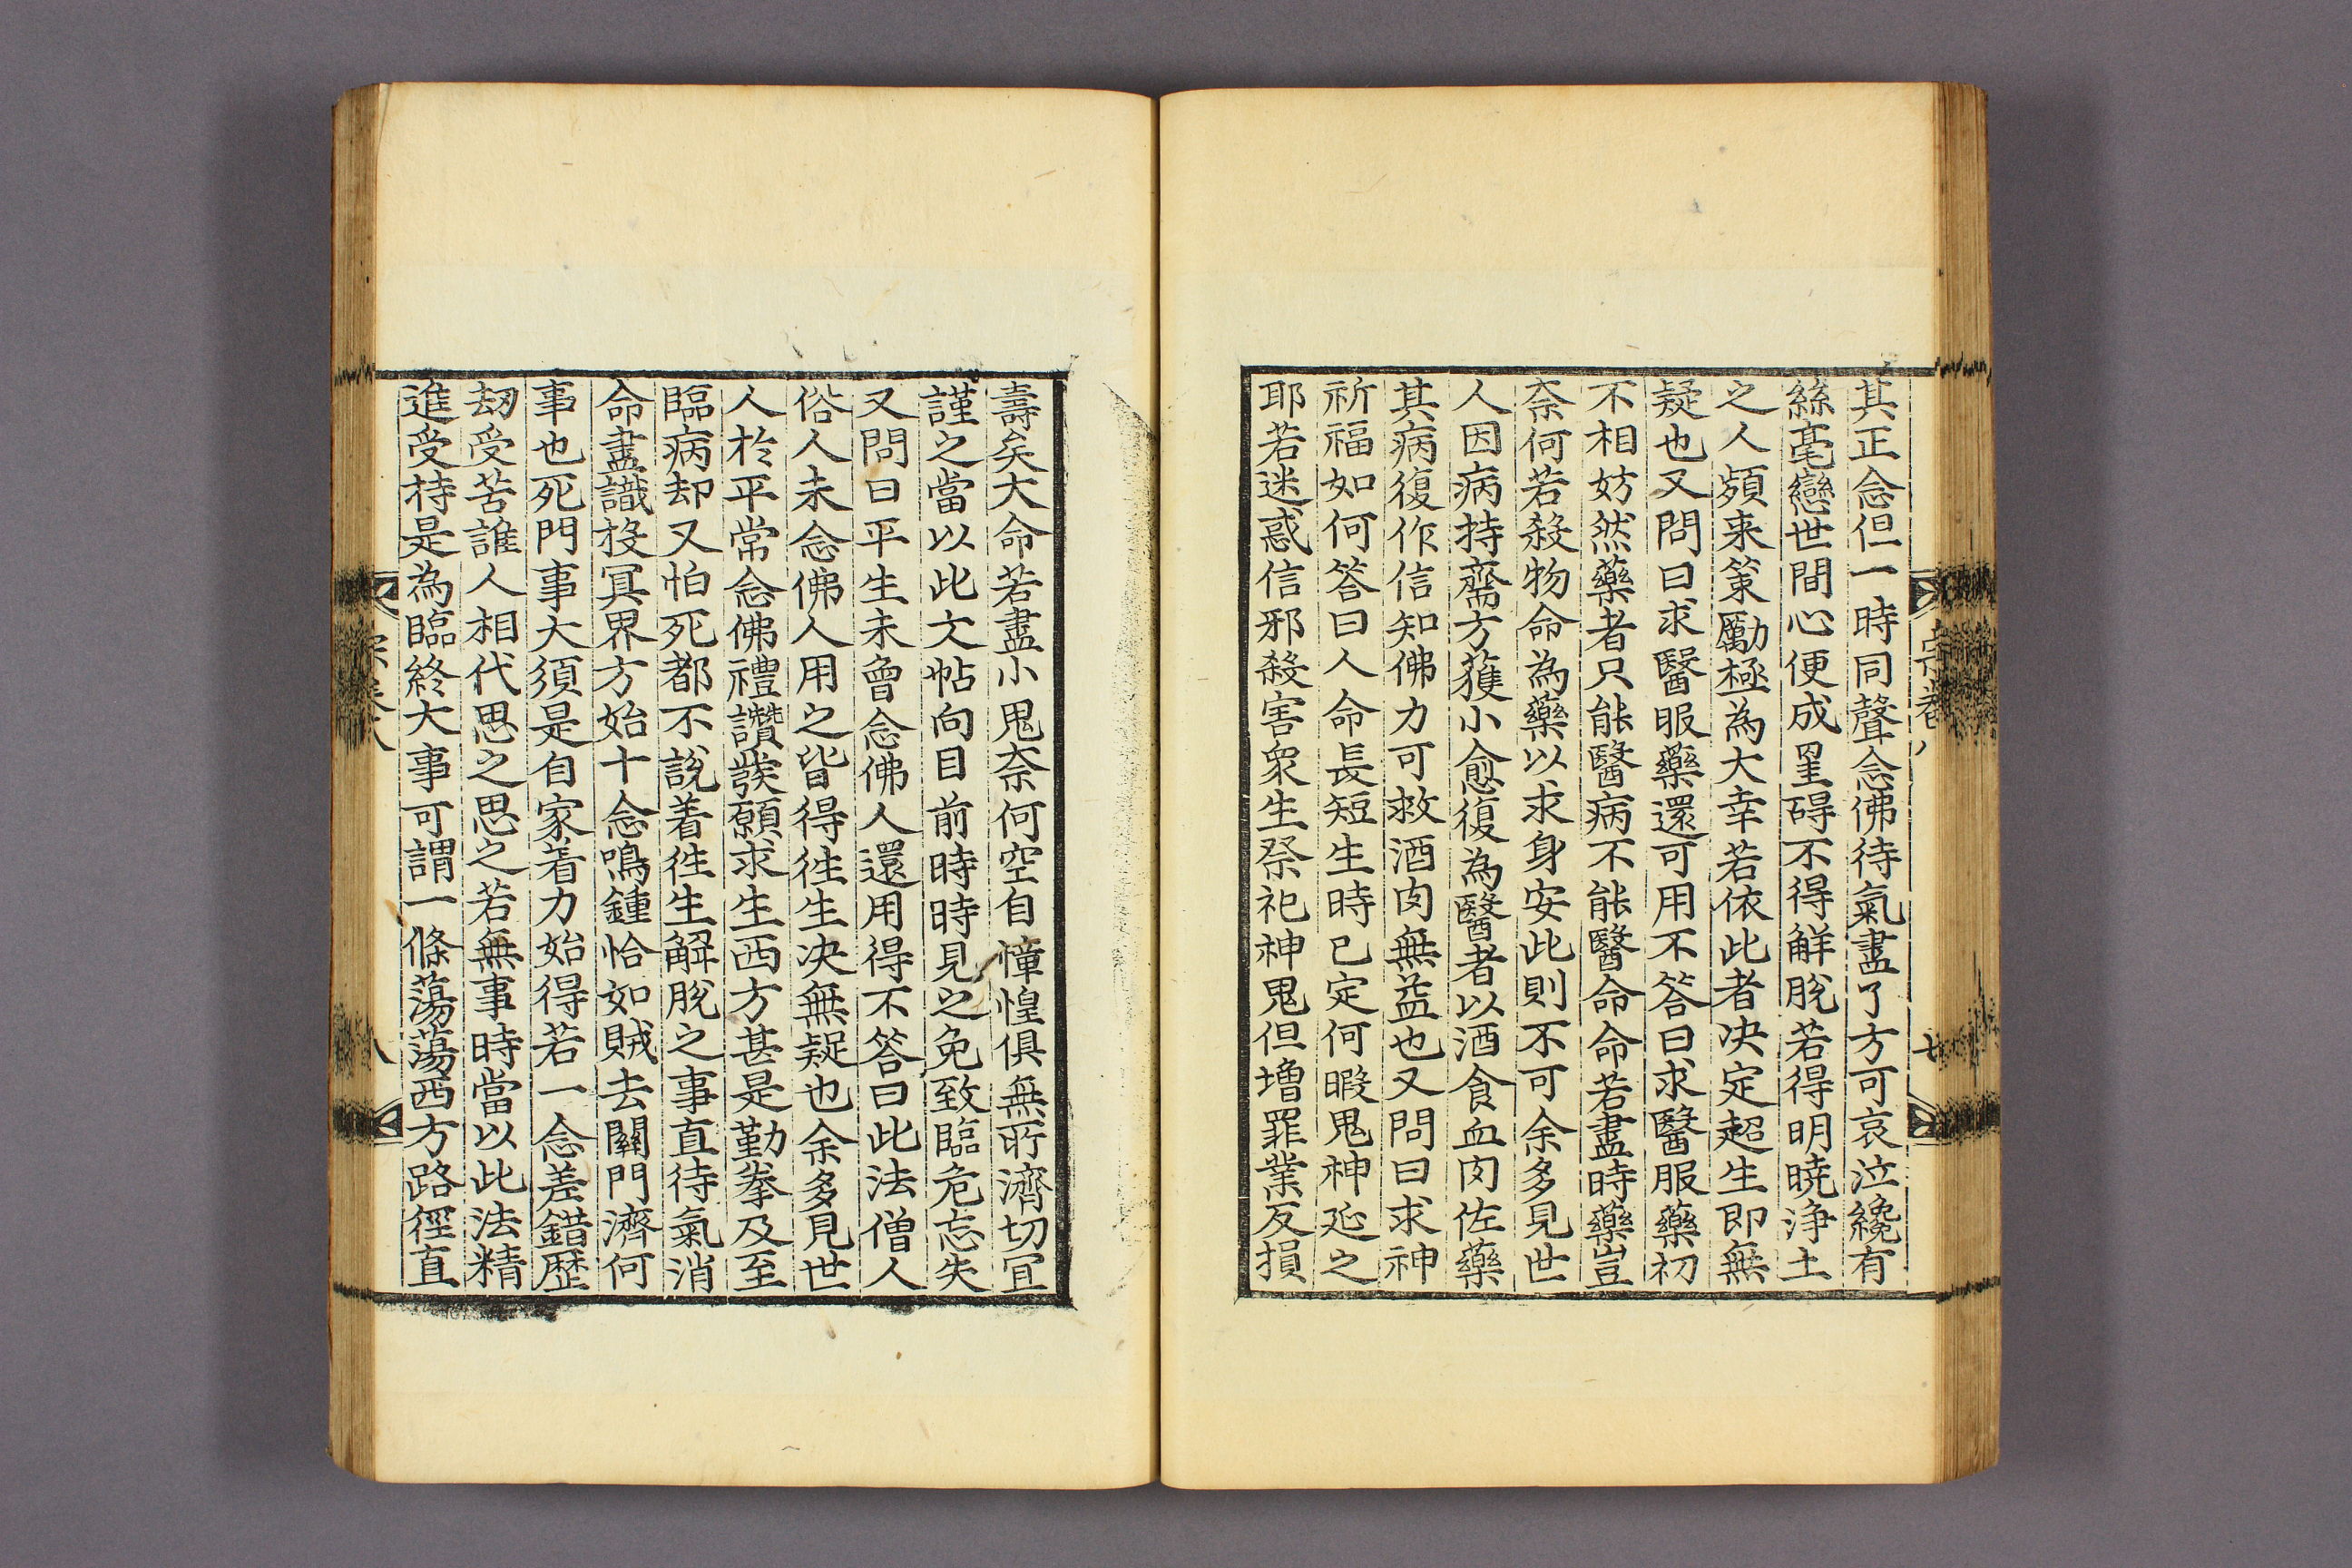 其正念但一時同聲念佛待氣盡了方可哀泣纔有
絲毫戀世間心便成罣碍不得解脫若得明曉淨土
之人頻来策勵極為大幸若依此者决定超生即無
疑也又問曰求醫服藥還可用不答曰求醫服藥初
不相妨然藥者只能醫病不能醫命命若盡時藥豈
奈何若殺物命為藥以求身安此則不可余多見世
人因病持齋方獲小愈復為醫者以酒食血肉佐藥
其病復作信知佛力可救酒肉無益也又問曰求神
祈福如何答曰人命長短生時已定何暇鬼神延之
耶若迷惑信邪殺害衆生祭祀神鬼但增罪業反損
宗卷八
壽矣大命若盡小鬼奈何空自慞惶俱無所濟切冝
謹之當以此文帖向目前時時見之免致臨危忘失
又問曰平生未曾念佛人還用得不答曰此法僧人
俗人未念佛人用之皆得徃生决無疑也余多見世
人於平常念佛禮讚發願求生西方甚是勤拳及至
臨病却又怕死都不說着徃生解脫之事直待氣消
命盡識投冥界方始十念鳴鍾恰如賊去關門濟何
事也死門事大須是自家着力始得若一念差錯歷
劫受苦誰人相代思之思之若無事時當以此法精
進受持是為臨終大事可謂一條蕩蕩西方路徑直
八